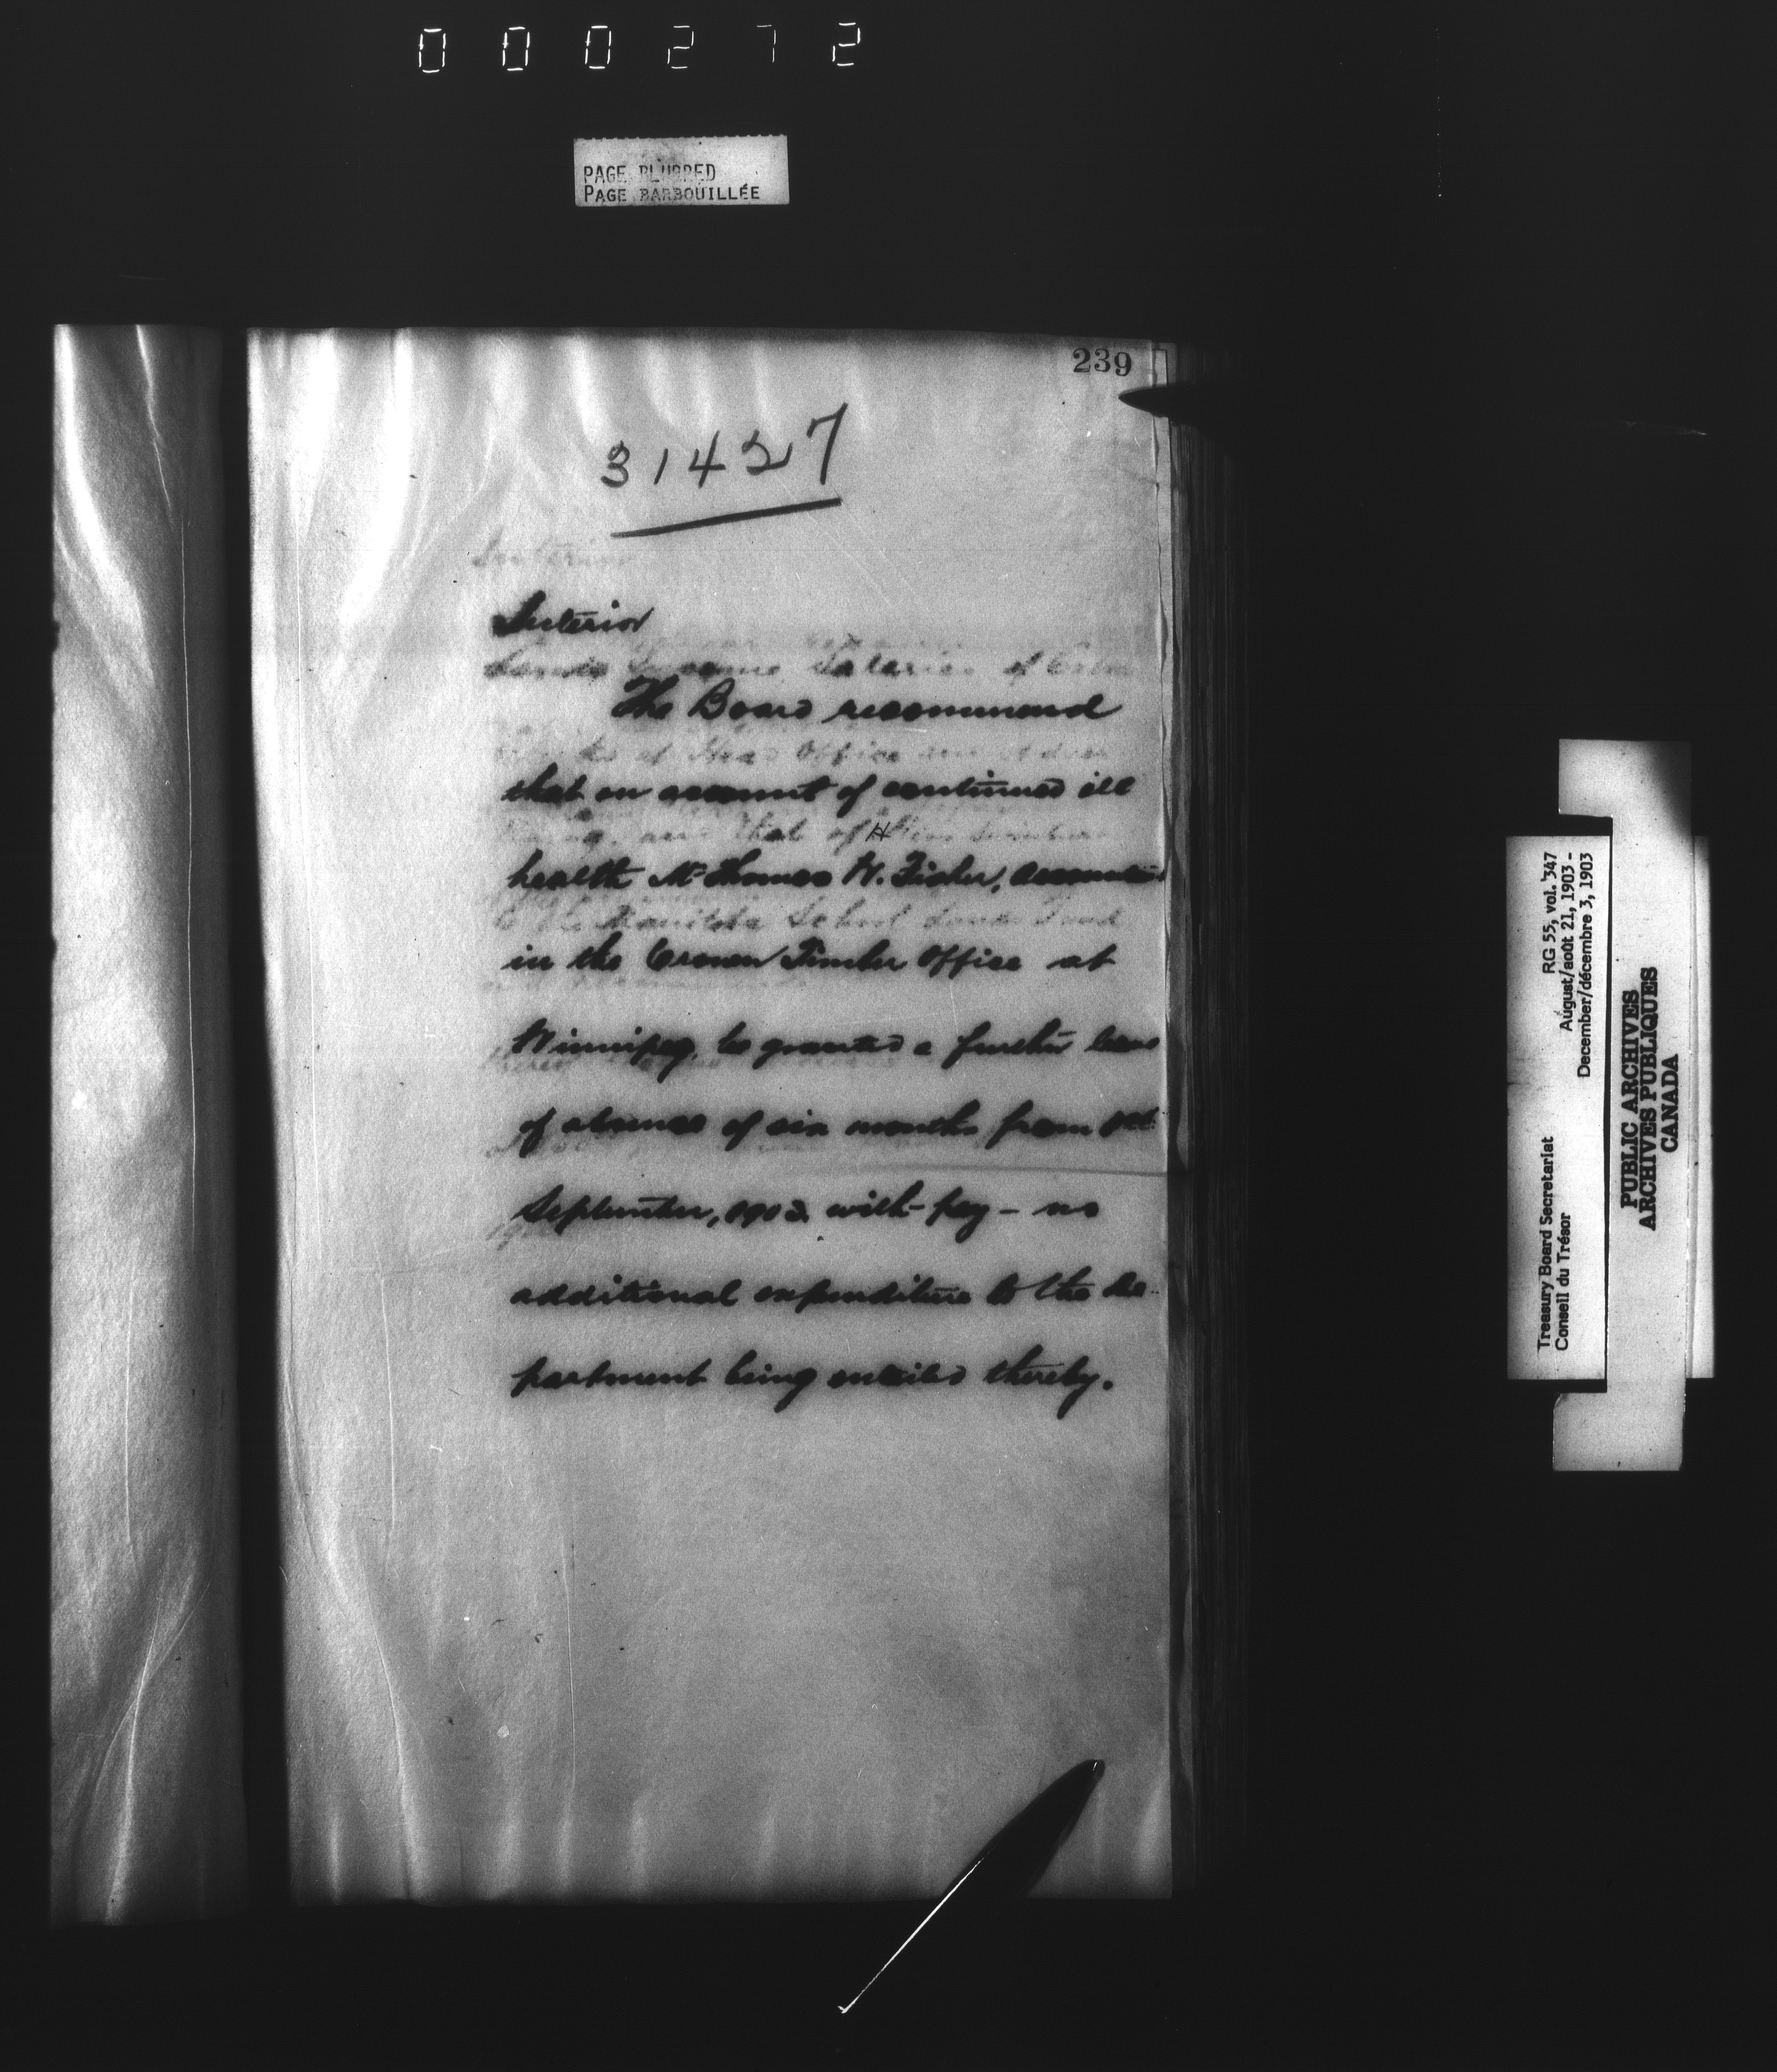 000272
PAGE BLURRED
PAGE BARBOUILLÉE
239
31427
Interior
The Board recommend
that on account of continued ill
health Mr Thomas H. Fisher, accountant
in the Crown Timber Office at
Winnipeg, be granted a further leave
of absence of six months from 1st
September, 1903. with pay - no
additional expenditure to the de-
partment being entailed thereby.
Treasury Board Secretariat RG 55, vol. 347
Conseil du Trésor August/août 21, 1903 -
December/décembre 3, 1903
PUBLIC ARCHIVES
ARCHIVES PUBLIQUES
CANADA